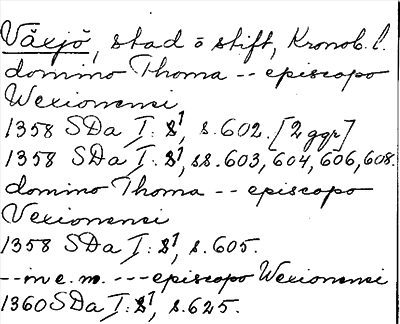 Växjö, stad o stift, Kronob. l.
domino Thoma -- episcopo
Wexionensi
1358 SDa I: 81, s. 602. [2 ggr]
1358 SDa I: 81, ss. 603, 604, 606, 608.
domino Thoma -- episcopo
Vexionensi
1358 SDa I: 81, s. 605.
-- in e. m. --- episcopo Wexionensi
1360 SDa I: 81, s. 625.